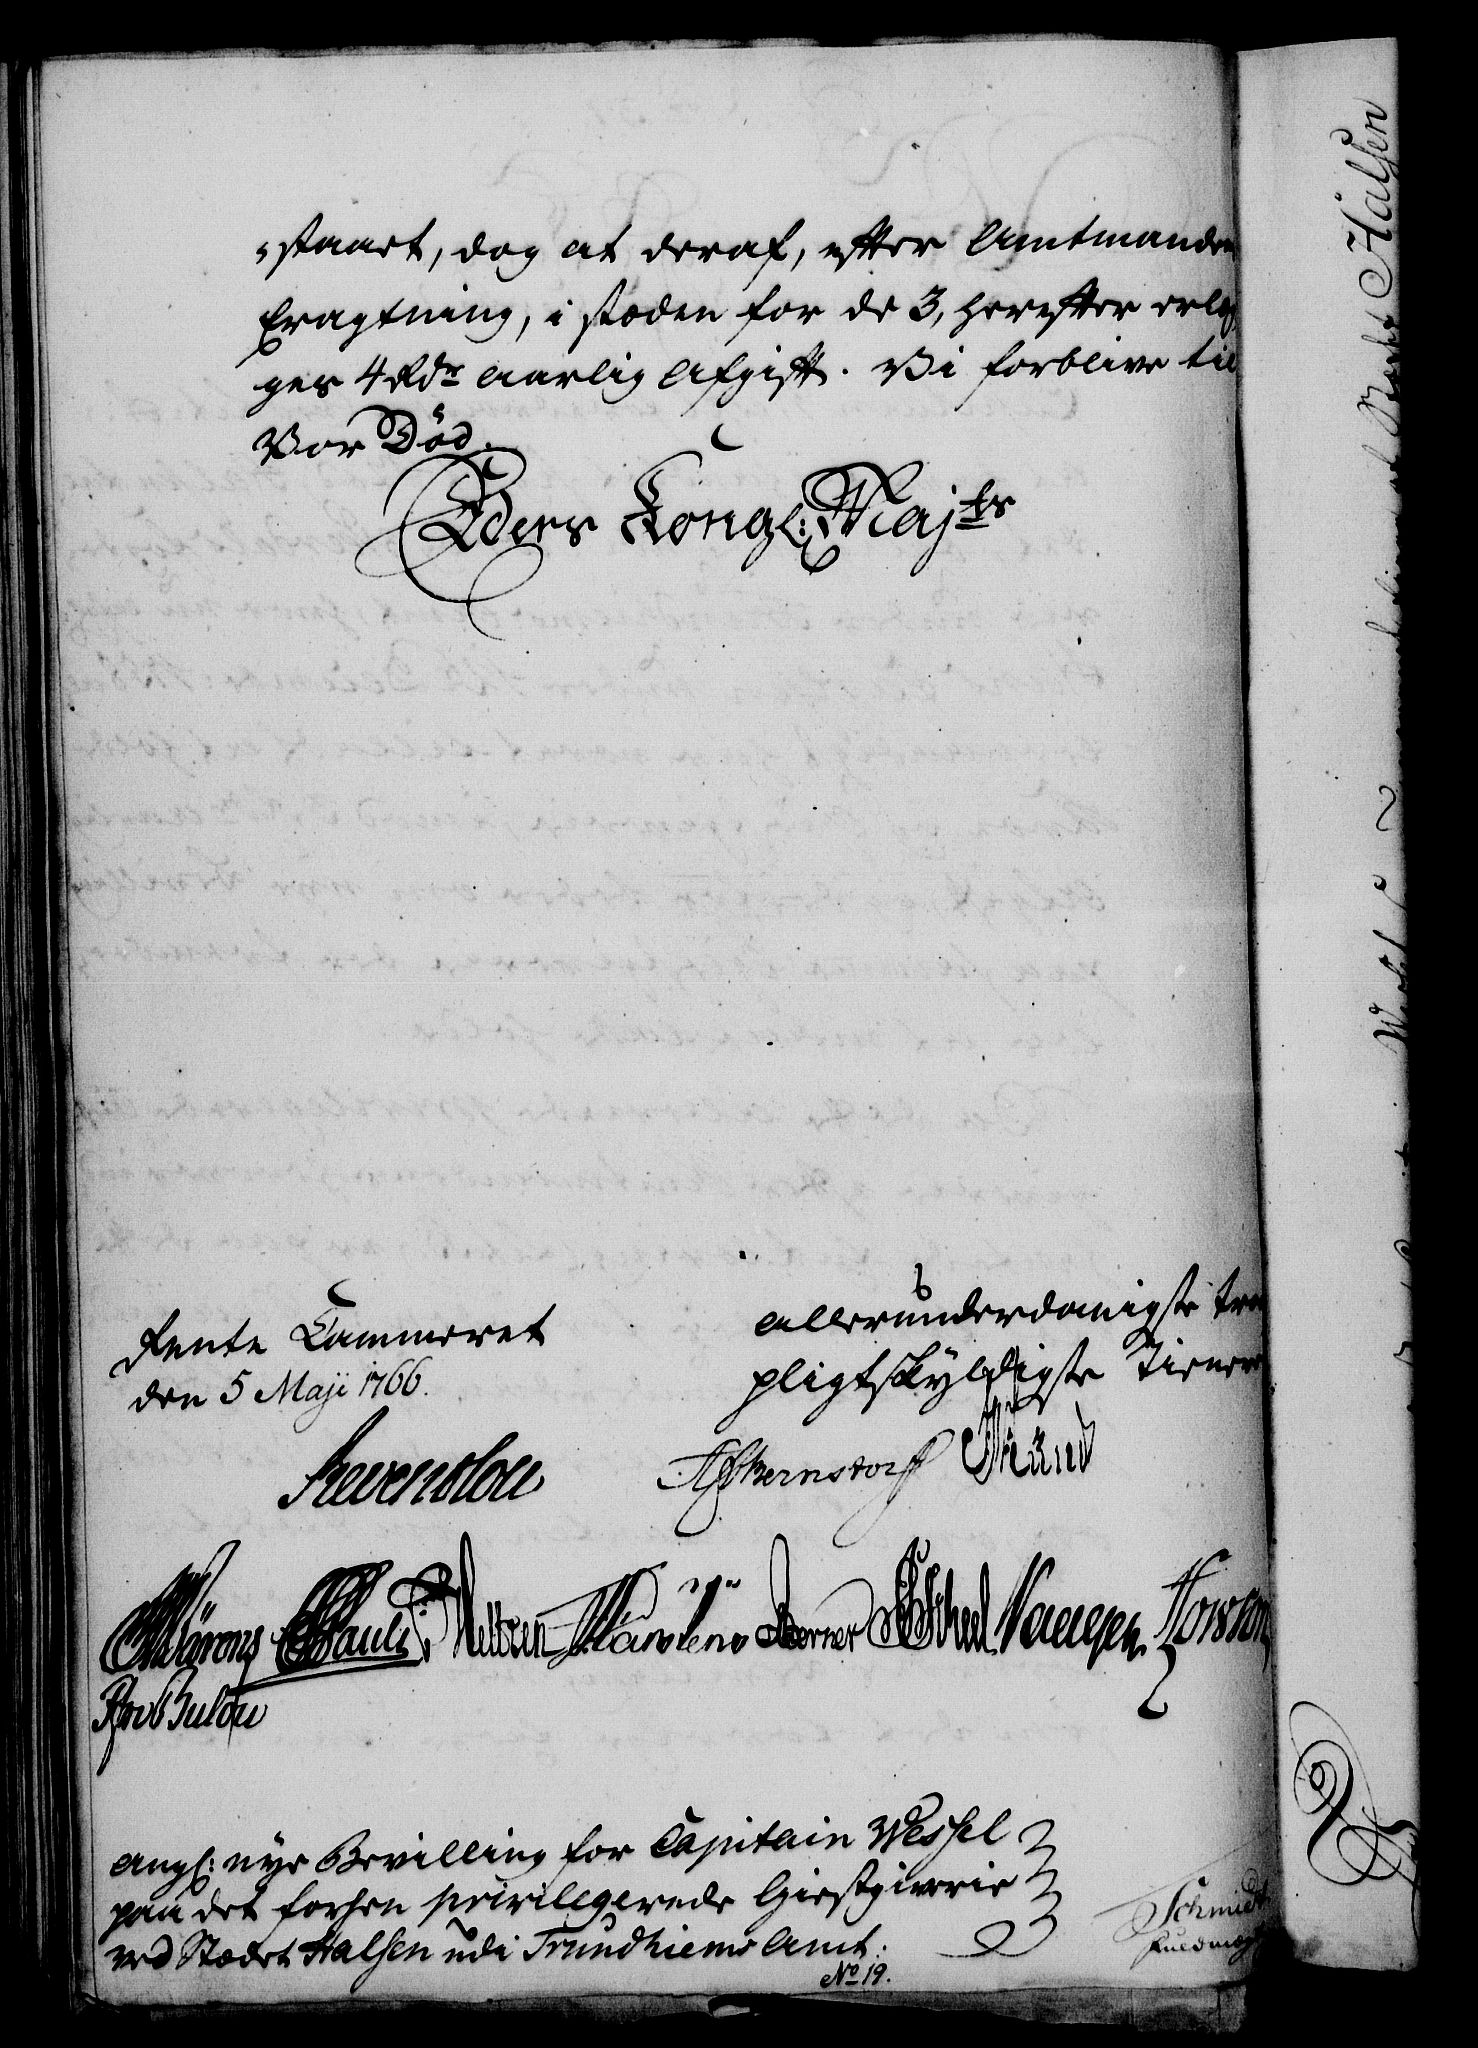 staaet, dog at deraf, efter Amtmanden
Eragtning, i stæden for de 3, herefter erlæg
ges 4 Rdr aarlig Afgift. Vi forblive til
Vor Død.
Eders Kongl: Majts
Rente Cammeret
den 5 Maji 1766.
allerunderdanigste tro
pligtskyldigste Tienere
Reventlou
AGBernstorff
Klørong Pauli Neltzen Mårtens Berner Scheel
FGvBulou
angl: nye Bevilling for Capitain Wessel
paa det forhen privilegerede Giestgiverie
ved Stædet Halsen udi Trundhiems Amt.
No 19.
Schmidt
Fuldmægt
Halsen